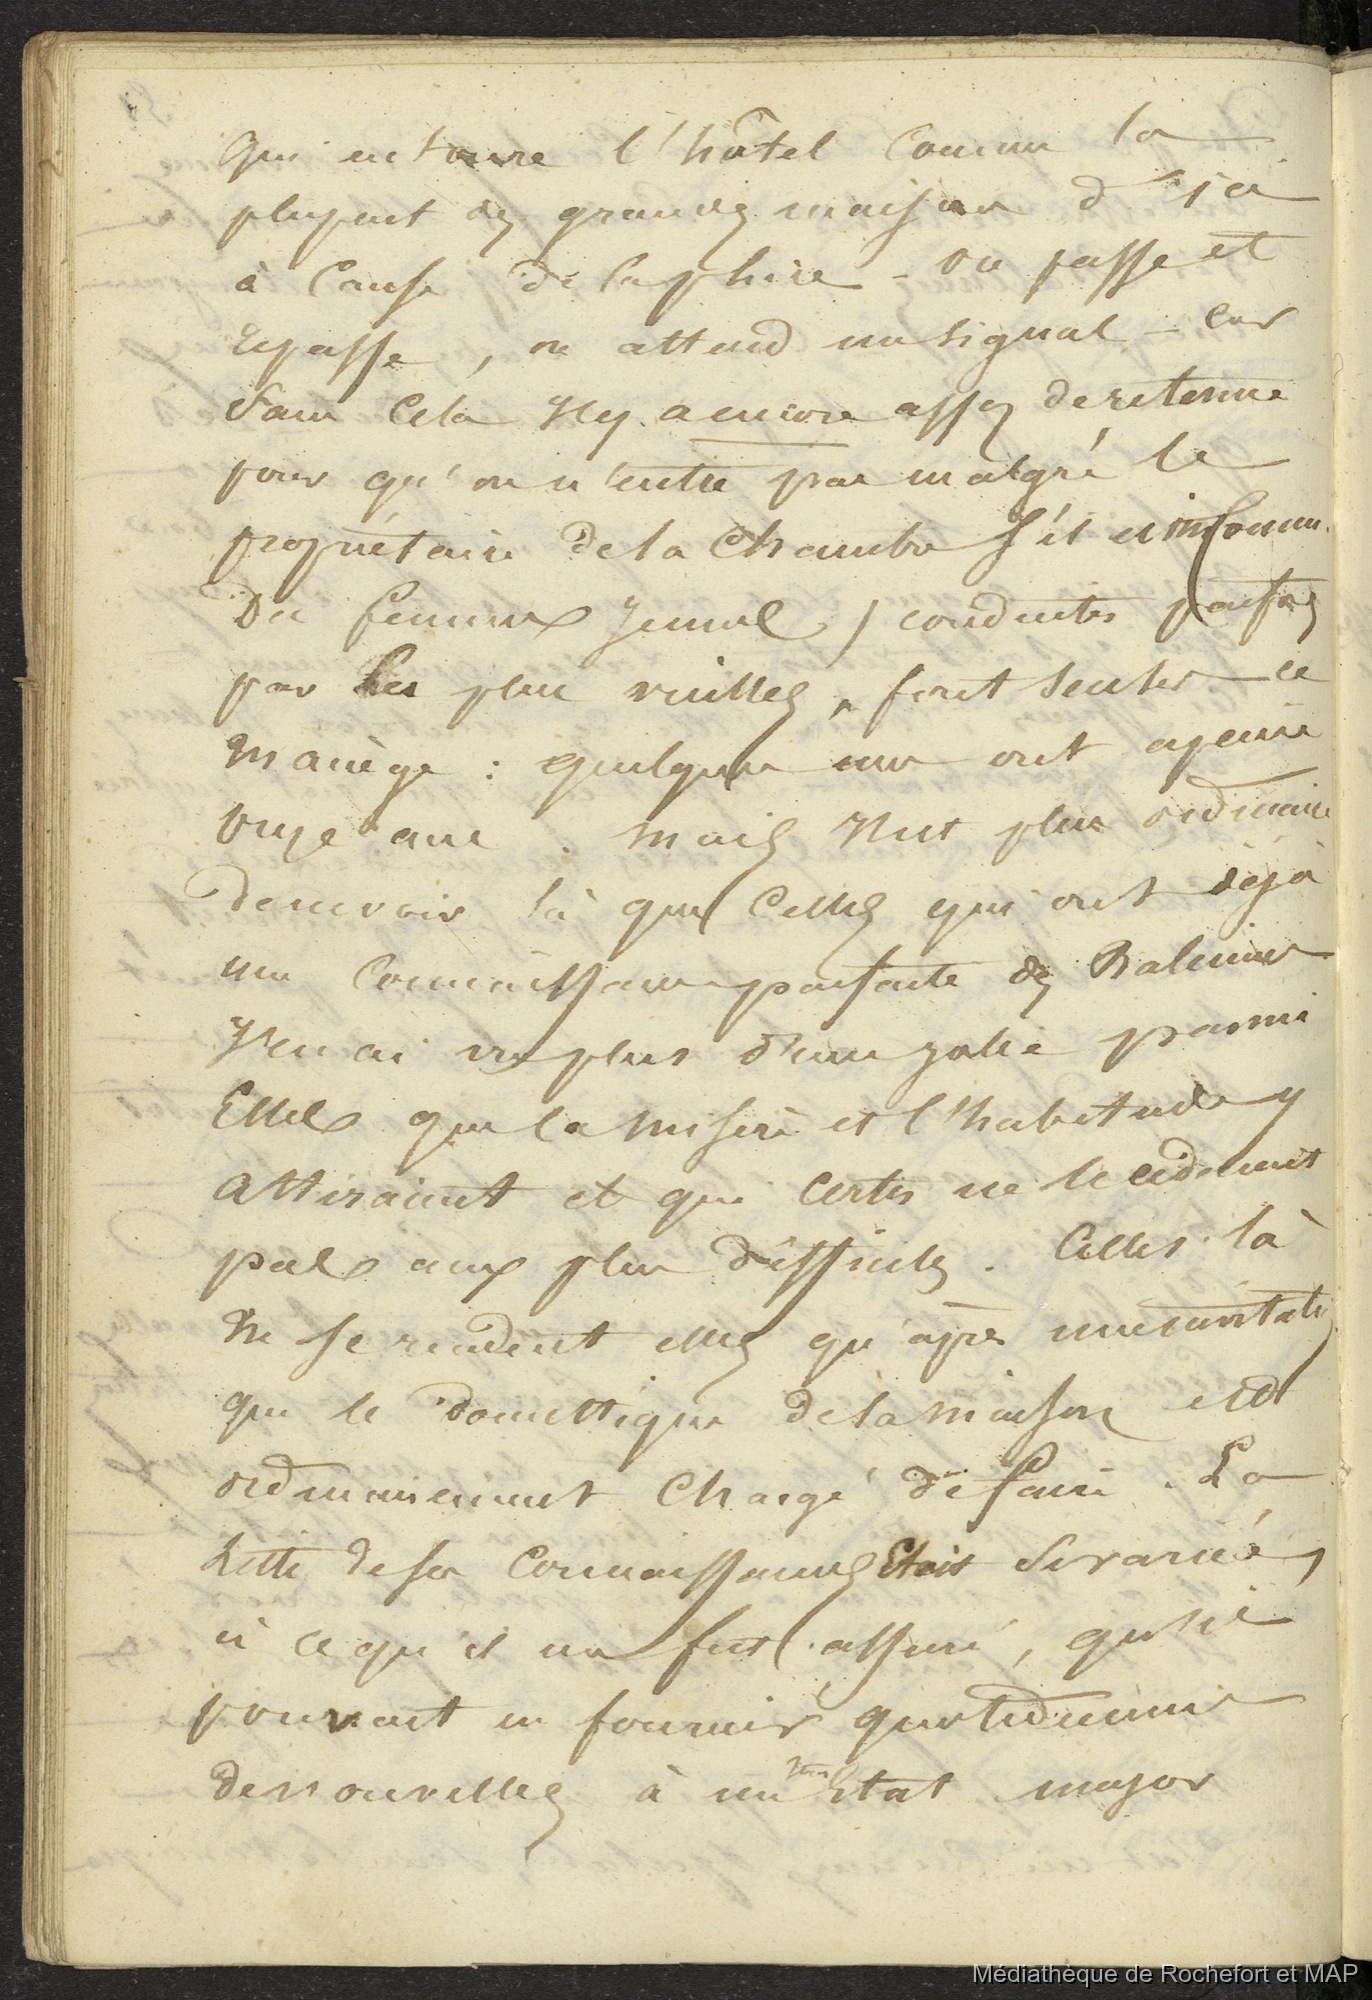 qui entoure l'hôtel comme la
plupart des grandes maisons d'ici
à cause de la pluie - on passe et
repasse, on attend un signal - car
sans cela il y a encore assez de retenue
pour qu'on n'entre pas malgré le
propriétaire de la chambre s'il est inconnu.
Des femmes jeunes, conduites parfois
par les plus vieilles, font seules ce
manège : quelques unes ont à peine
onze ans. mais il n'est plus ordinaire
de ne voir là que celles qui ont déjà
une connaissance parfaite des
J'en ai vu plus d'une jolie parmi
Elles que la misère et l'habitude y
attiraient et qui certes ne le cédaient
pas aux plus difficiles. Celles là
ne se rendent elles qu'après une invitation
que le domestique de la maison est
ordinairement chargé de faire. La
liste de ses connaissances était si variée,
à ce qu'il me fut assuré, qu'il
pouvait en fournir quotidiennement
de nouvelles à un Etat major
Médiathèque de Rochefort et MAP